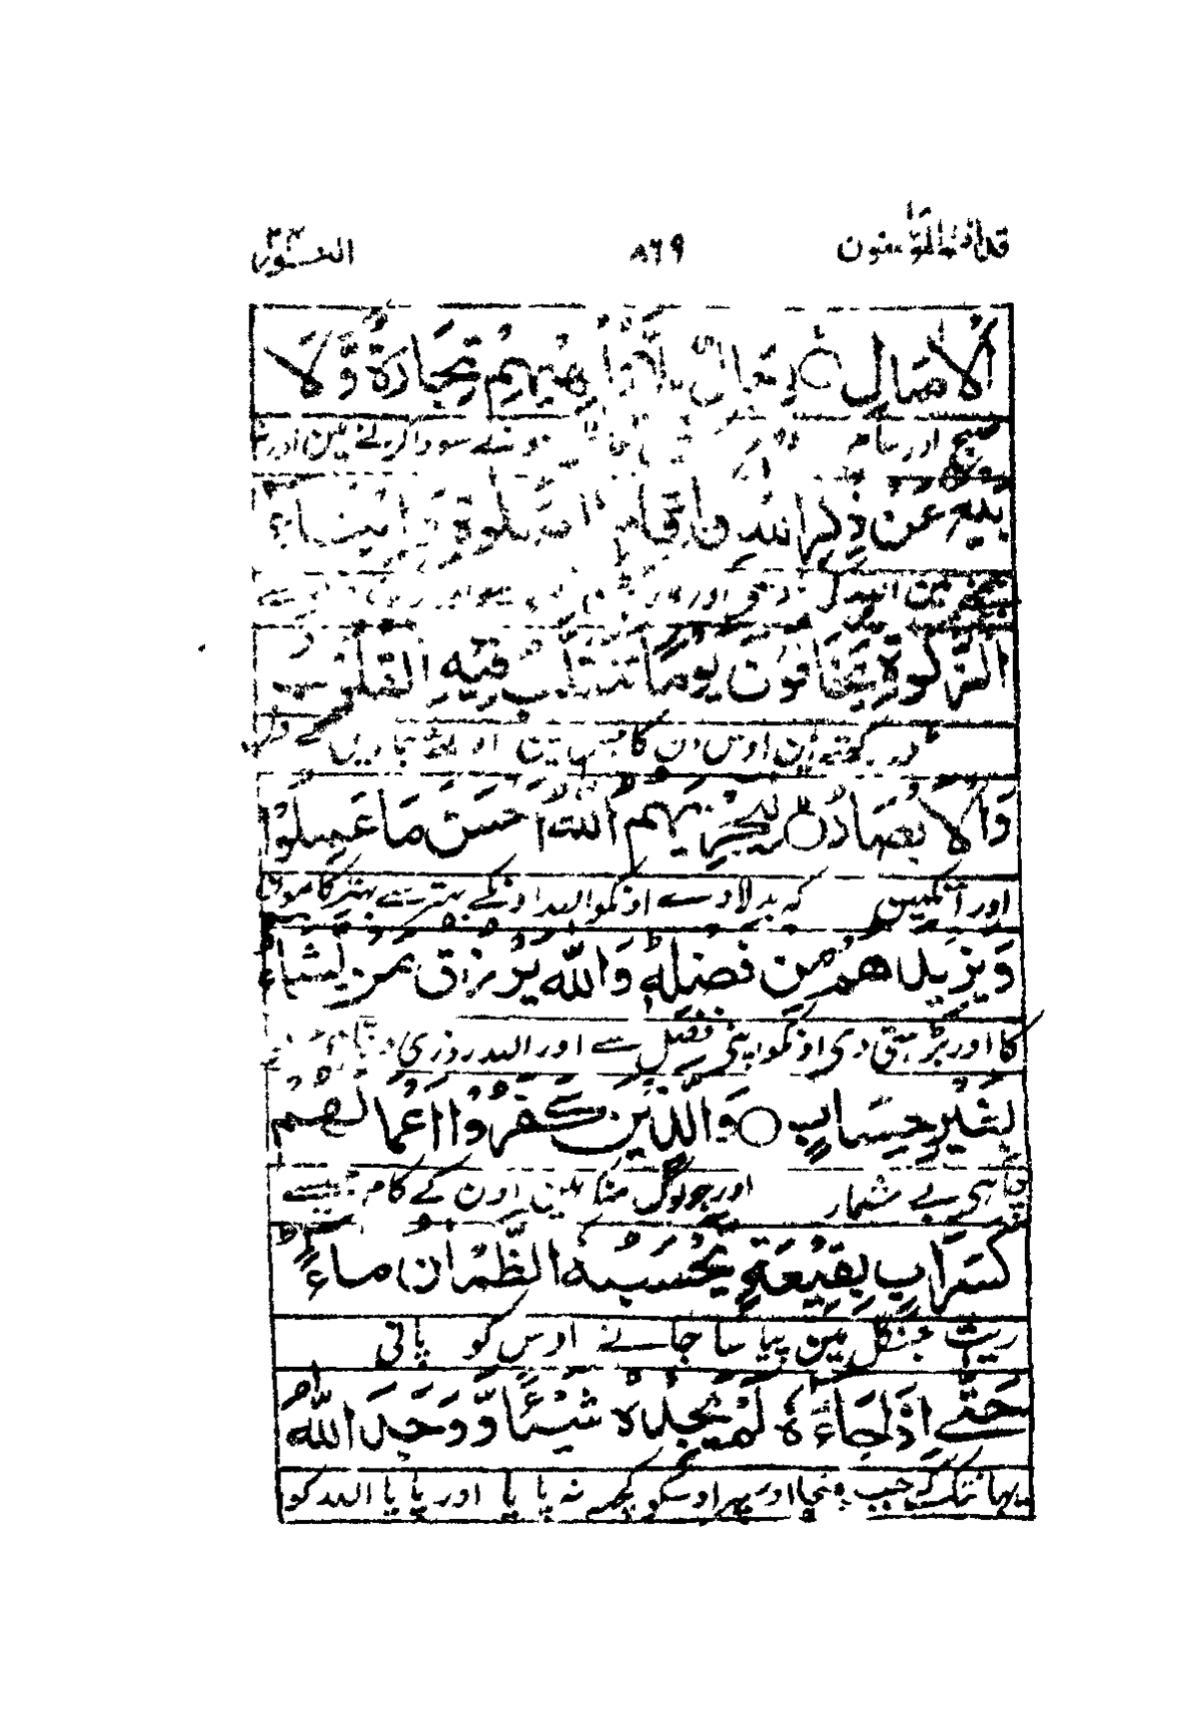 قد افلح المؤمنون ۸۶۹ النور ۲۴
الْاٰصَالِ ○ رِجَالٌ لَّا تُلْهِيْهِمْ تِجَارَةٌ وَّلَا
صبح اور شام سودا کرنے مین اور نہ
بَيْعٌ عَنْ ذِكْرِ اللّٰهِ وَاِقَامِ الصَّلٰوةِ وَاِيْتَاءِ
بیچنے مین اللہ کی اور
الزَّكٰوةِ يَخَافُوْنَ يَوْمًا تَتَقَلَّبُ فِيْهِ الْقُلُوْبُ
ڈر رکھتے ہین اوس دن کا جس مین اولٹے جاوین گے دل
وَالْاَبْصَارُ ○ لِيَجْزِيَهُمُ اللّٰهُ اَحْسَنَ مَا عَمِلُوْا
اور آنکھین کہ بدلا دے اونکو اللہ اونکے بہتر سے بہتر کامون
وَيَزِيْدَهُمْ مِّنْ فَضْلِهٖ وَاللّٰهُ يَرْزُقُ مَنْ يَّشَاءُ
کا اور بڑھتی دی اونکو اپنی فضل سے اور اللہ روزی دیتا ہے جسے
بِغَيْرِ حِسَابٍ ○ وَالَّذِيْنَ كَفَرُوْا اَعْمَالُهُمْ
چاہی بے شمار اور جو لوگ منکر ہین اون کے کام جیسے
كَسَرَابٍ بِقِيْعَةٍ يَّحْسَبُهُ الظَّمْاٰنُ مَاءً
ریت جنگل مین پیاسا جانے اوس کو پانی
حَتّٰى اِذَا جَاءَهٗ لَمْ يَجِدْهُ شَيْئًا وَّوَجَدَ اللّٰهَ
یہانتک کہ جب پہنچا اوس پر اوسکو کچھ نہ پایا اور پایا اللہ کو